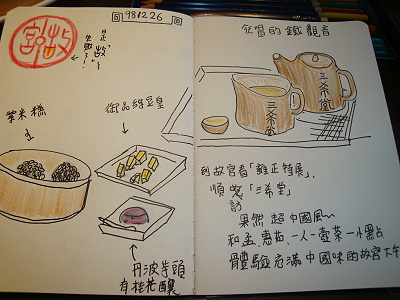 回 981226 回
故宮
是"故"~
御品綠豆皇
紫米糕
丹波芋頭
有桂花釀
征唱的鐵觀音
三希堂
三希堂
到故宮看「雍正特展」,
順訪「三希堂」
果然超中國風~
和孟惠茹、一人一壺茶一小點心
體驗充滿中國味的故宮下午